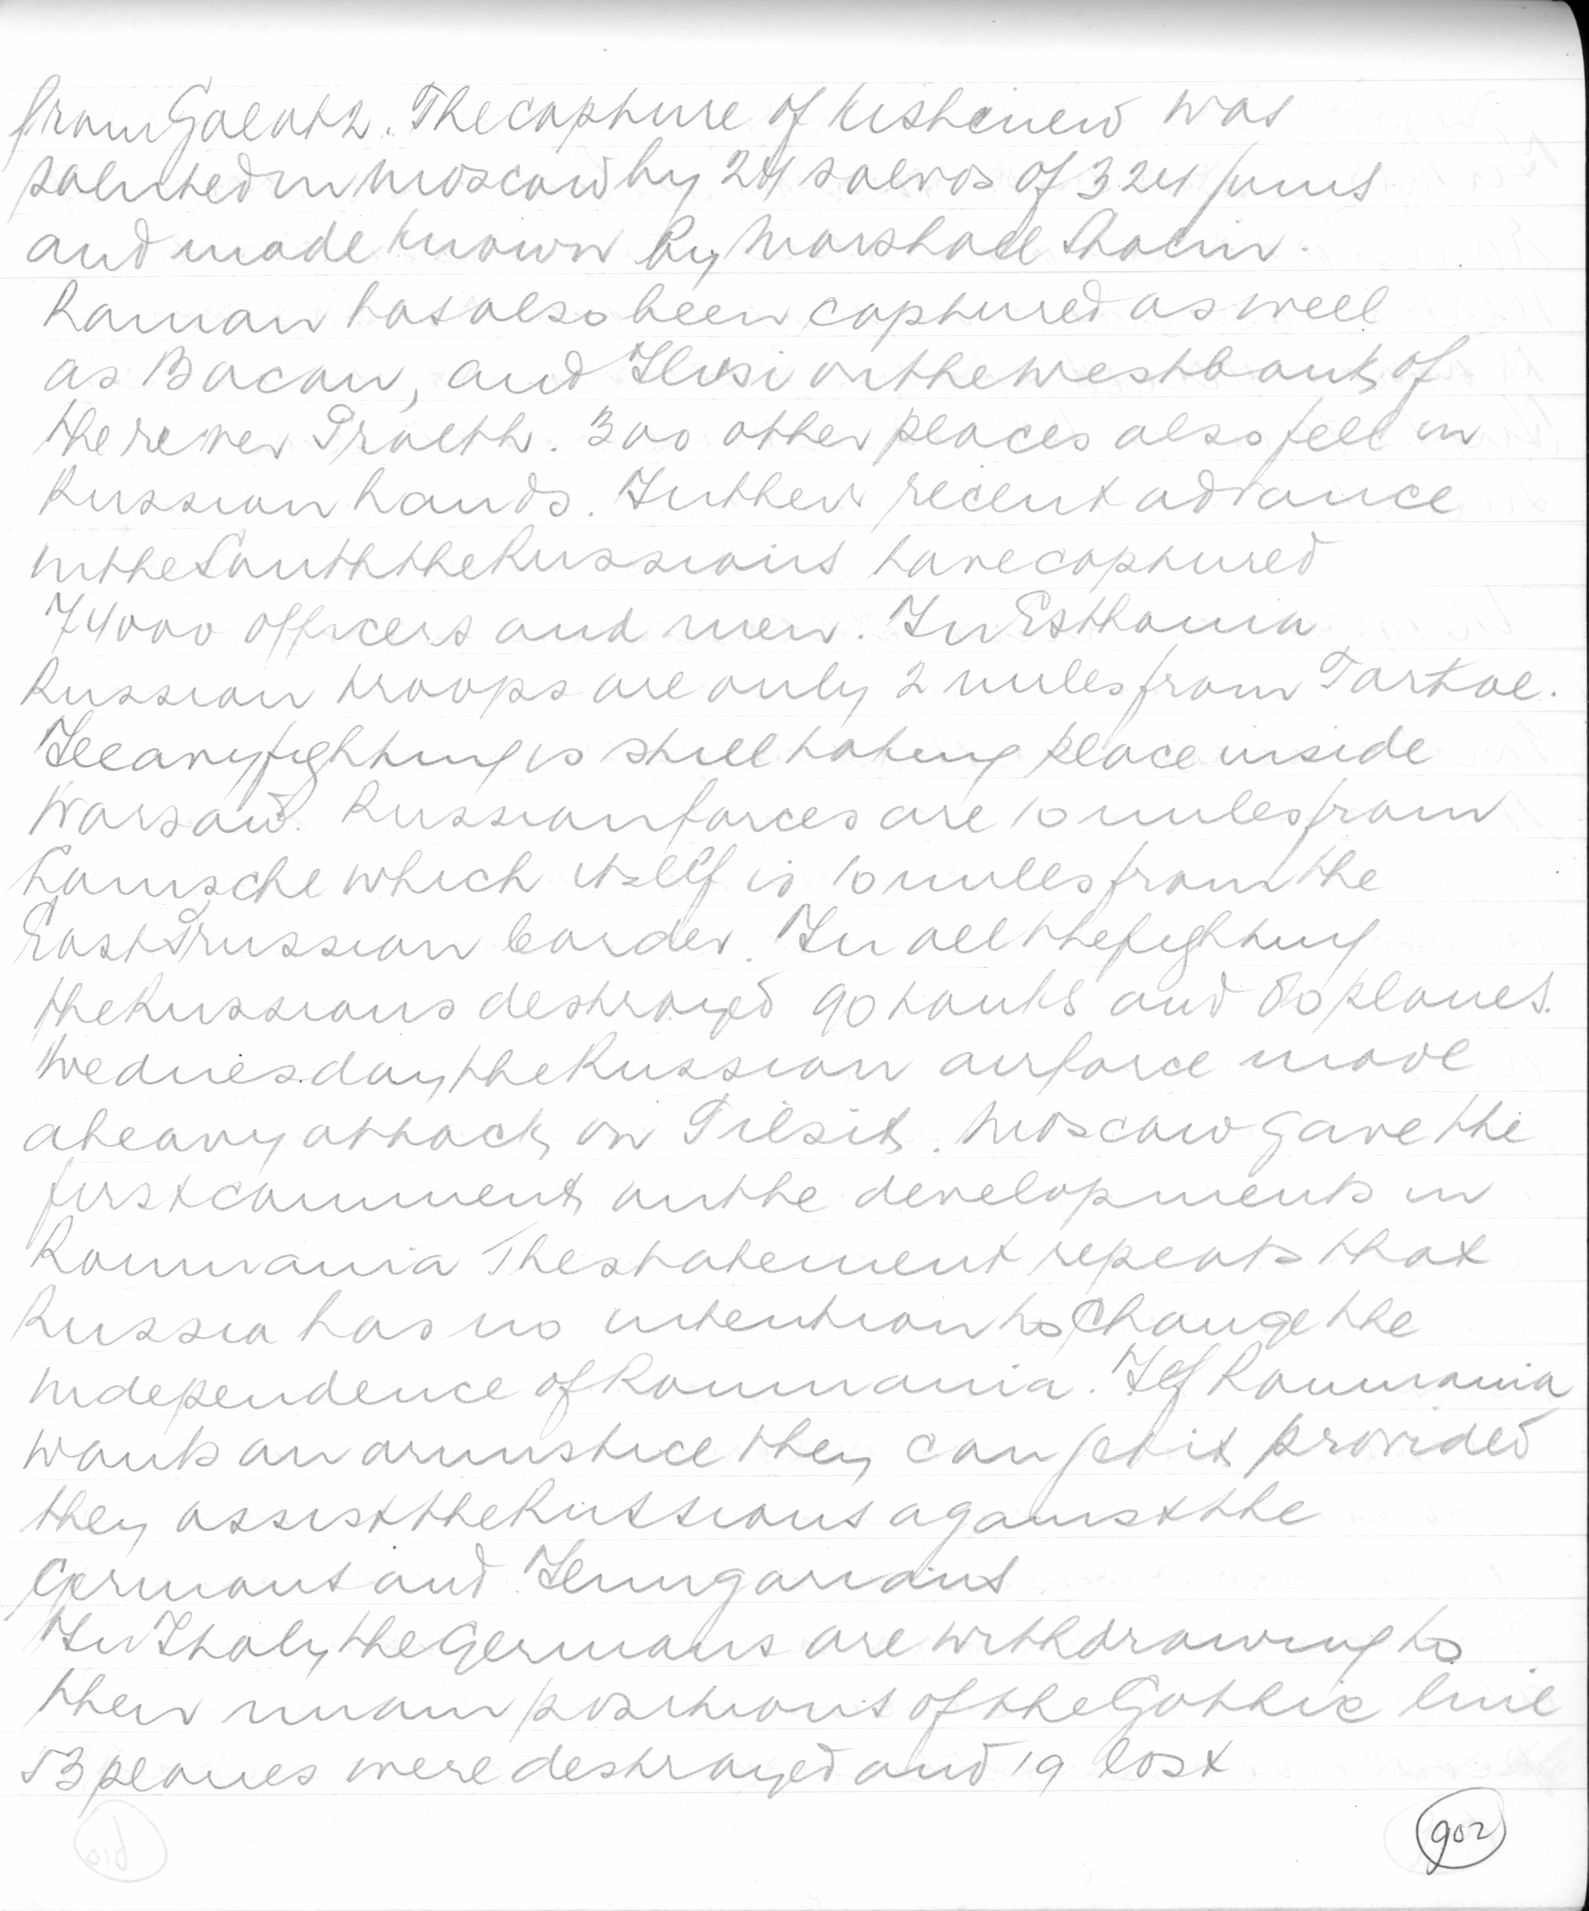 from Galatz. The capture of Kishinew was
saluted in Moscow by 24 salvos of 324 guns
and made known by Marshall Stalin.
Roman has also been captured as well
as Bacau, and Husi on the west bank of
the river Prulth. 300 other places also fell in
Russian hands. In their recent advance
in the South the Russians have captured
74000 officers and men. In Esthonia
Russian troops are only 2 miles from Tartoe.
Heavy fighting is still taking place inside
Warsaw. Russian forces are 10 miles from
Lomsche which itself is 10 miles from the
East Prussian border. In all the fighting
the Russians destroyed 90 tanks and 80 planes.
Wednesday the Russian airforce made
a heavy attack on Tilsit. Moscow gave the
first comment on the developments in
Roumania The statement repeats that
Russia has no intention to change the
independence of Roumania. If Roumania
wants an armistice they can get it provided
they assist the Russians against the
Germans and Hungarians
In Italy the Germans are withdrawing to
their main positions of the Gothic line
53 planes were destroyed and 19 lost
902